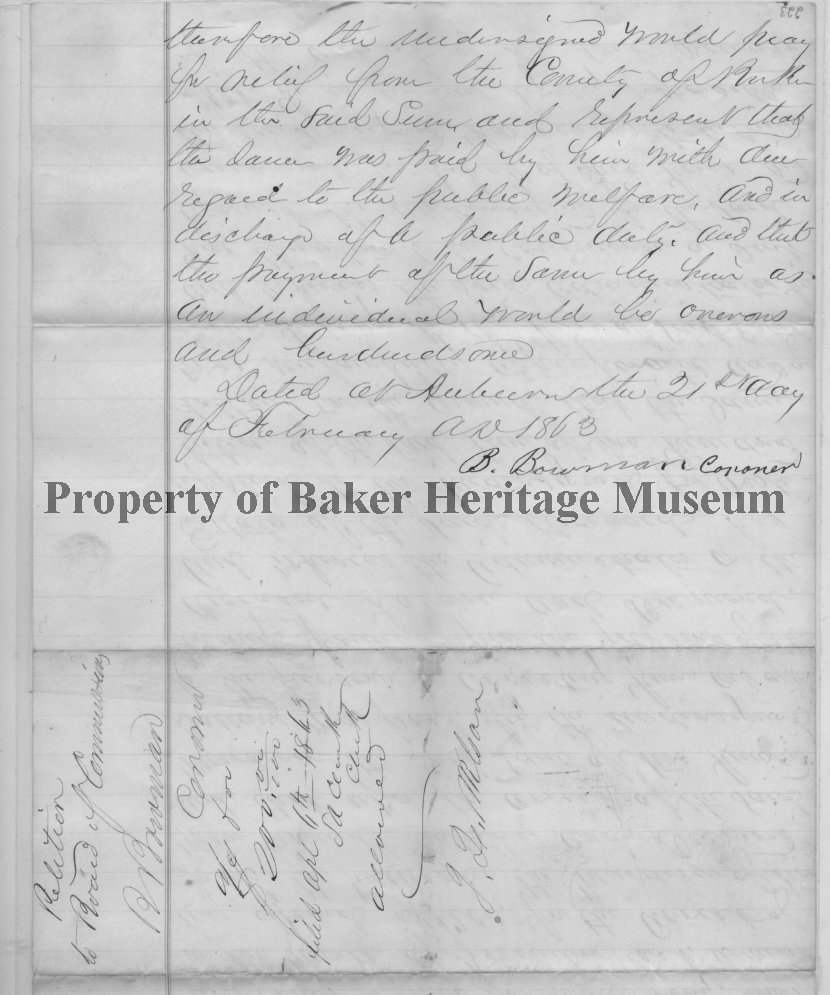 therefore the undersigned would pray
for relief from the County of Baker
in the said Sum, and represent that
the same was paid by him with due
regard to the public welfare, and in
discharge of a public duty. and that
the payment of the same by him as
an individual would be onerous
and burdensome
Dated at Auburn the 21st day
of February AD 1863
B. Bowman Coroner
Property of Baker Heritage Museum
Petition
to Board of Commissioners
B Bowman
Coroner
for
filed Apl 6th 1863
Clerk
allowed
J. H.